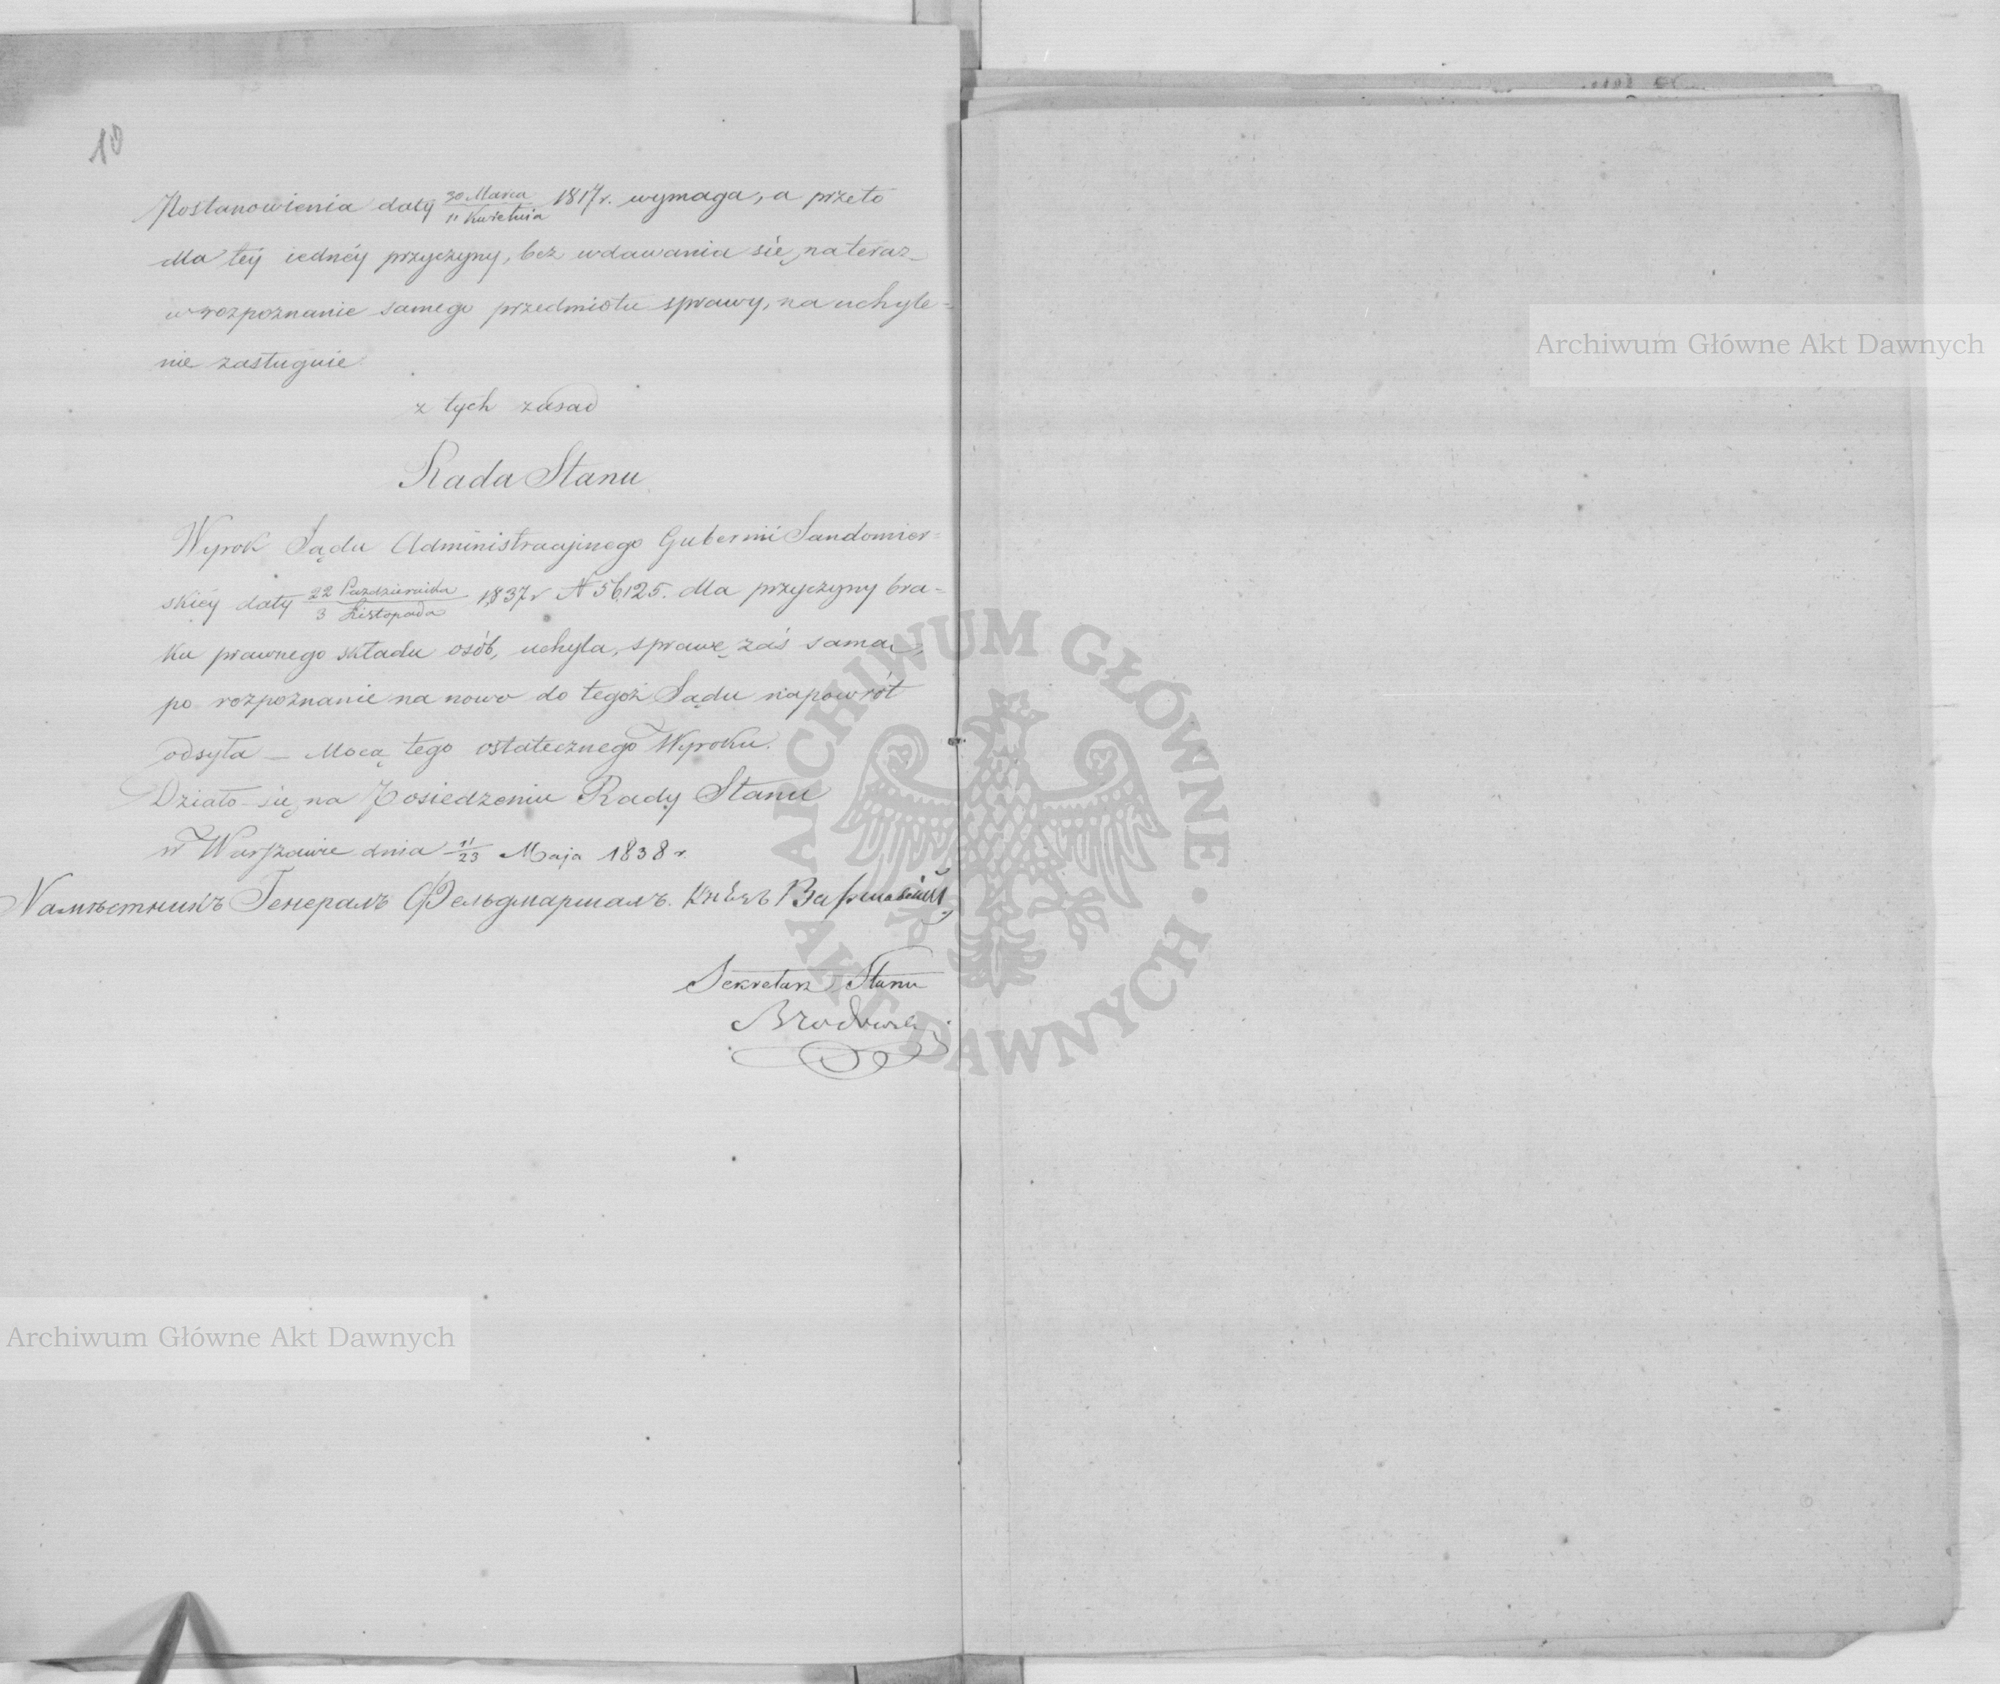 10
Postanowienia daty 30 Marca / 11 Kwietnia 1817 r. wymaga, a przeto
dla téy iednéy przyczyny, bez wdawania się na teraz
w rozpoznanie samego przedmiotu sprawy, na uchyle=
nie zasługuie
z tych zasad
Rada Stanu
Wyrok Sądu Administracyjnego Gubernii Sandomier=
skiéy daty 22 Pazdziernika / 3 Listopada 1837 r N 56,125. dla przyczyny bra=
ku prawnego składu osób, uchyla, sprawę zaś samą,
po rozpoznanie na nowo do tegoż Sądu napowrót
odsyła – Mocą tego ostatecznego Wyroku.
Działo się na Posiedzeniu Rady Stanu
w Warszawie dnia 11/23 Maja 1838 r.
Намѣстникъ Генералъ Фельдмаршалъ. Князь Варшавскій
Sekretarz Stanu
Brodowski
Archiwum Główne Akt Dawnych
Archiwum Główne Akt Dawnych
ARCHIWUM GŁÓWNE · AKT DAWNYCH ·